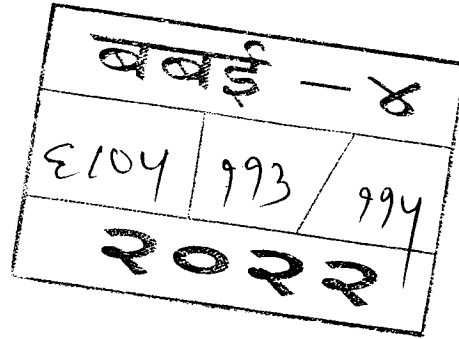 बबई - ४
६८०५ ११३ / ११५
२०२२